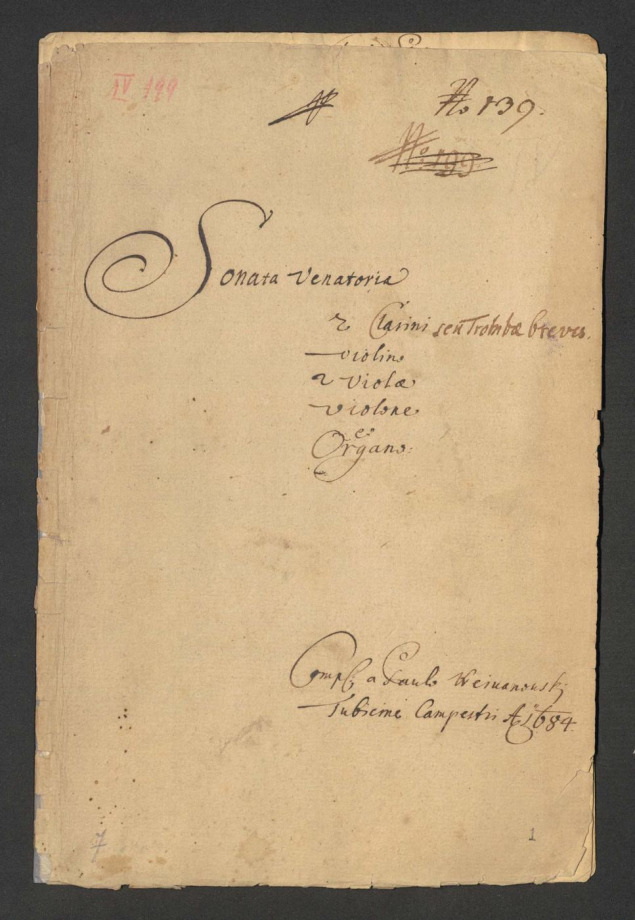 IV 199
No 139.
No. 199.
Sonata Venatoria
2 Clarini seu Trombæ breves.
violino
2 Violæ
violone
eo
Organo:
a Paulo Weiuanousky
Tubicine Campestri Aº 1684
7
1